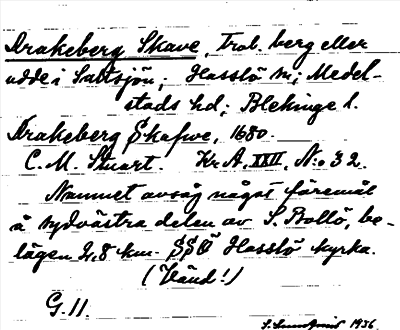 Drakeberg Skave, trol. berg eller
udde i Saltsjön; Hasslö sn; Medel-
stads hd; Blekinge l.
Drakeberg Skafwe, 1680.
C. M. Stuart. Kr. A. XXII, N:o 32.
Namnet avsåg något föremål
å sydvästra delen av S. Bollö, be-
lägen 2,8 km. SSÖ Hasslö kyrka.
(Vänd!)
G. 11.
1936.